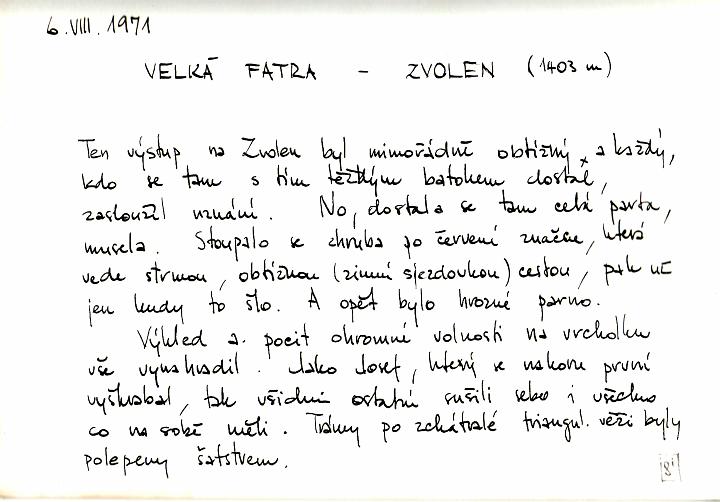 6. VIII. 1971
VELKÁ FATRA - ZVOLEN (1403 m)
Ten výstup na Zvolen byl mimořádně obtížný a každý,
kdo se tam s tím těžkým batohem dostal,
zasloužil uznání. No, dostala se tam celá parta,
musela. Stoupalo se zhruba po červené značce, která
vede strmou, obtížnou (zimní sjezdovkou) cestou, pak už
jen kudy to šlo. A opět bylo hrozné parno.
Výhled a pocit ohromné volnosti na vrcholku
vše vynahradil. Jako Josef, který se nahoru první
vyškrabal, tak všichni ostatní sušili sebe i všechno
co na sobě měli. Trámy po zchátralé triangul. věži byly
polepeny šatstvem.